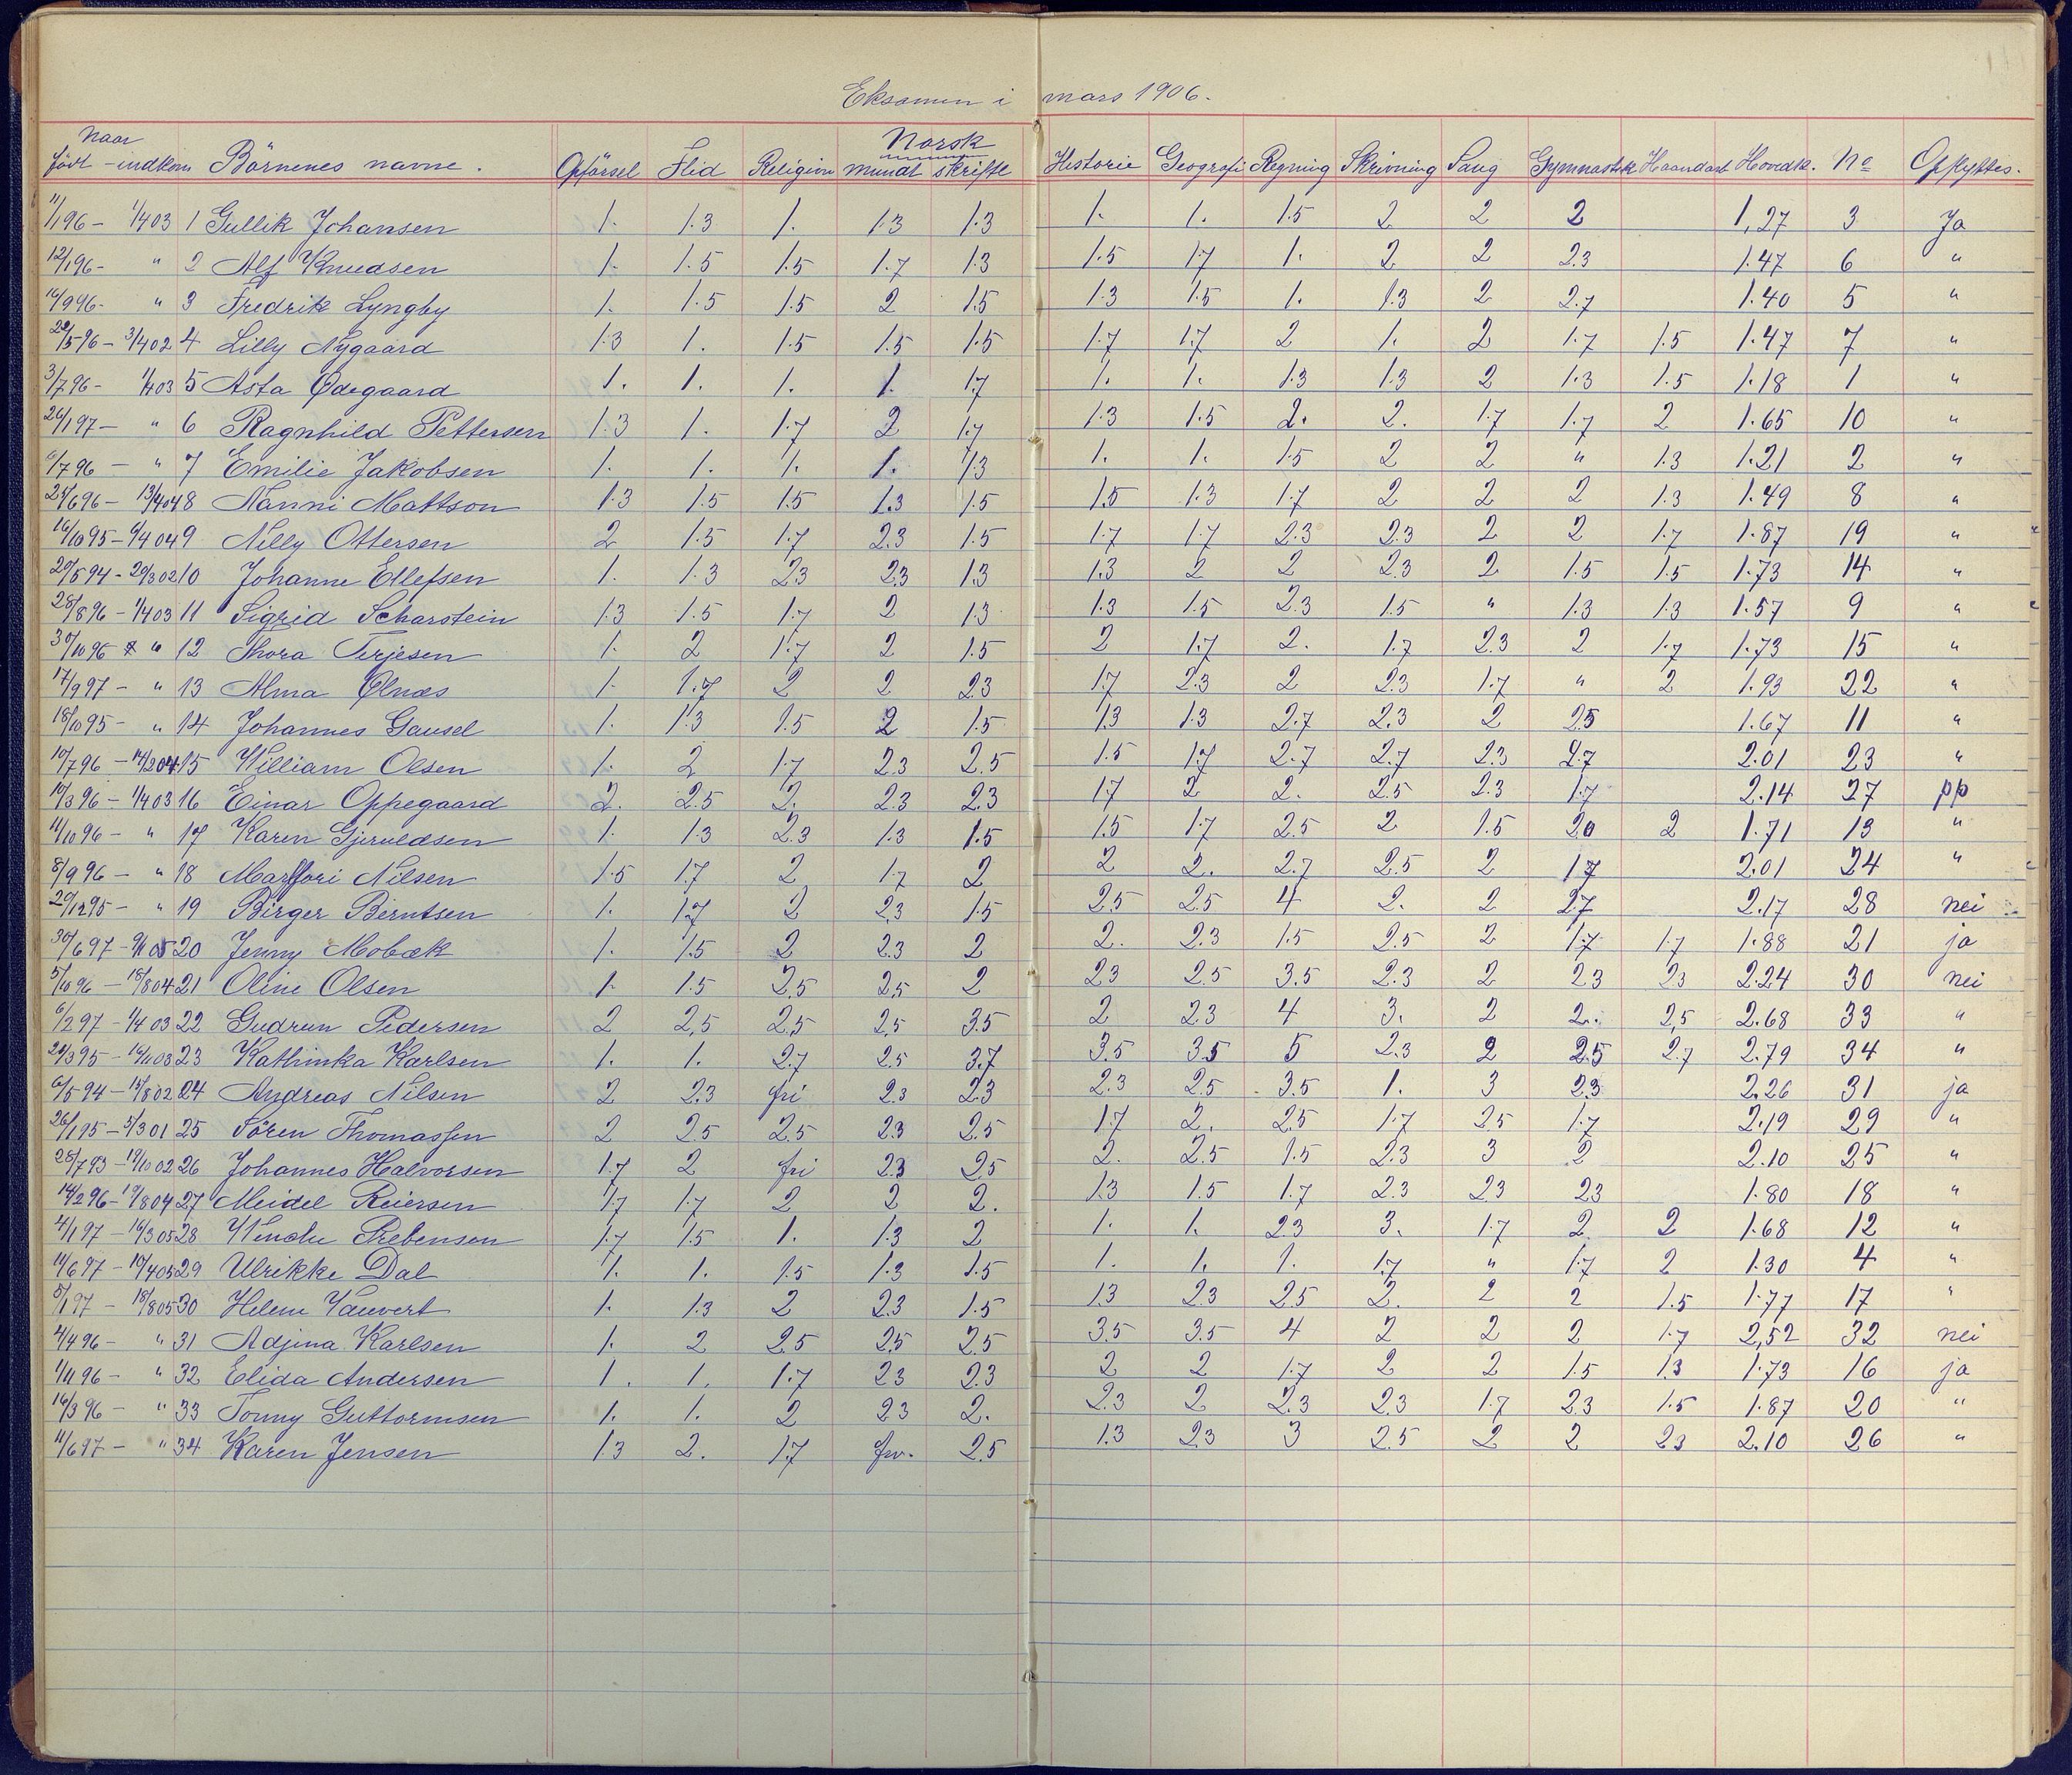 Eksamen i mars 1906.
Naar
født - indkom Börnenes navne. Opførsel Flid Religion Norsk mundt. skriftl. Historie Geografi Regning Skrivning Sang Gymnastik Haandarb. Hovedk. No Opflyttes.
11/1 96 - 1/4 03 1 Gullik Johansen 1. 1.3 1. 1.3 1.3 1. 1. 1.5 2 2 2 1,27 3 Ja
12/1 96 - " 2 Alf Knudsen 1. 1.5 1.5 1.7 1.3 1.5 1.7 1. 2 2 2.3 1.47 6 "
14/9 96 - " 3 Fredrik Lyngby 1. 1.5 1.5 2 1.5 1.3 1.5 1. 1.3 2 2.7 1.40 5 "
22/5 96 - 3/4 02 4 Lilly Nygaard 1.3 1. 1.5 1.5 1.5 1.7 1.7 2 1. 2 1.7 1.5 1.47 7 "
3/7 96 - 1/4 03 5 Asta Ødegaard 1. 1. 1. 1. 1.7 1. 1. 1.3 1.3 2 1.3 1.5 1.18 1 "
26/1 97 - " 6 Ragnhild Pettersen 1.3 1. 1.7 2 1.7 1.3 1.5 2. 2. 1.7 1.7 2 1.65 10 "
6/7 96 - " 7 Emilie Jakobsen 1. 1. 1. 1. 1.3 1. 1. 1.5 2 2 " 1.3 1.21 2 "
25/6 96 - 13/4 04 8 Nanni Mattson 1.3 1.5 1.5 1.3 1.5 1.5 1.3 1.7 2 2 2 1.3 1.49 8 "
16/10 95 - 6/4 04 9 Nelly Ottersen 2 1.5 1.7 2.3 1.5 1.7 1.7 2.3 2.3 2 2 1.7 1.87 19 "
20/5 94 - 20/3 02 10 Johanne Ellefsen 1. 1.3 2.3 2.3 1.3 1.3 2 2 2.3 2 1.5 1.5 1.73 14 "
28/8 96 - 1/4 03 11 Sigrid Scharstein 1.3 1.5 1.7 2 1.3 1.3 1.5 2.3 1.5 " 1.3 1.3 1.57 9 "
30/10 96 " 12 Thora Terjesen 1. 2 1.7 2 1.5 2 1.7 2. 1.7 2.3 2 1.7 1.73 15 "
17/9 97 - " 13 Alma Ølnæs 1. 1.7 2 2 2.3 1.7 2.3 2 2.3 1.7 " 2 1.93 22 "
18/10 95 - " 14 Johannes Gausel 1. 1.3 1.5 2 1.5 1.3 1.3 2.7 2.3 2 2.5 1.67 11 "
10/7 96 - 14/2 04 15 William Olsen 1. 2 1.7 2.3 2.5 1.5 1.7 2.7 2.7 2.3 2.7 2.01 23 "
10/3 96 - 1/4 03 16 Einar Oppegaard 2. 2.5 2. 2.3 2.3 1.7 2 2. 2.5 2.3 1.7 2.14 27 pp
11/10 96 - " 17 Karen Gjeruldsen 1. 1.3 2.3 1.3 1.5 1.5 1.7 2.5 2 1.5 2.0 2 1.71 13 "
8/9 96 - " 18 Nilsen 1.5 1.7 2 1.7 2 2 2. 2.7 2.5 2 1.7 2.01 24 "
29/12 95 - " 19 Birger Berntsen 1. 1.7 2 2.3 1.5 2.5 2.5 4 2. 2 2.7 2.17 28 nei
30/6 97 - 9/1 05 20 Jenny Mobæk 1. 1.5 2 2.3 2 2. 2.3 1.5 2.5 2 1.7 1.7 1.88 21 ja
5/10 96 - 18/8 04 21 Oline Olsen 1. 1.5 2.5 2.5 2 2.3 2.5 3.5 2.3 2 2.3 2.3 2.24 30 nei
6/2 97 - 1/4 03 22 Gudrun Pedersen 2 2,5 2.5 2,5 3.5 2 2.3 4 3. 2 2. 2,5 2.68 33 "
24/3 95 - 16/11 03 23 Kathinka Karlsen 1. 1. 2.7 2.5 3.7 3.5 3.5 5 2.3 2 2.5 2.7 2.79 34 "
6/5 94 - 15/8 02 24 Andreas Nilsen 2 2.3 fri 2.3 2.3 2.3 2.5 3.5 1. 3 2.3 2.26 31 ja
26/1 95 - 5/3 01 25 Sören Thomassen 2 2.5 2.5 2.3 2.5 1.7 2. 2.5 1.7 2.5 1.7 2.19 29 "
28/7 93 - 19/10 02 26 Johannes Halvorsen 1.7 2 fri 2.3 2.5 2. 2.5 1.5 2.3 3 2 2.10 25 "
14/2 96 - 19/8 04 27 Meidel Reiersen 1.7 1.7 2 2 2. 1.3 1.5 1.7 2.3 2.3 2.3 1.80 18 "
4/1 97 - 16/3 05 28 Wenche Prebensen 1.7 1.5 1. 1.3 2 1. 1. 2.3 3. 1.7 2. 2 1.68 12 "
11/6 97 - 10/4 05 29 Ulrikke Dal 1. 1. 1.5 1.3 1.5 1. 1. 1. 1.7 " 1.7 2 1.30 4 "
5/1 97 - 18/8 05 30 Helene Vauvert 1. 1.3 2 2.3 1.5 1.3 2.3 2.5 2. 2 2 1.5 1.77 17 "
4/4 96 - " 31 Adjina Karlsen 1. 2 2.5 2.5 2.5 3.5 3.5 4 2 2 2 1.7 2,52 32 nei
1/11 96 - " 32 Elida Andersen 1. 1. 1.7 2.3 2.3 2 2 1.7 2 2 1.5 1.3 1.73 16 ja
16/3 96 - " 33 Tonny Guttormsen 1. 1. 2 2.3 2. 2.3 2 2.3 2.3 1.7 2.3 1.5 1.87 20 "
11/6 97 - " 34 Karen Jensen 1.3 2. 1.7 2.5 1.3 2.3 3 2.5 2 2 2.3 2.10 26 "